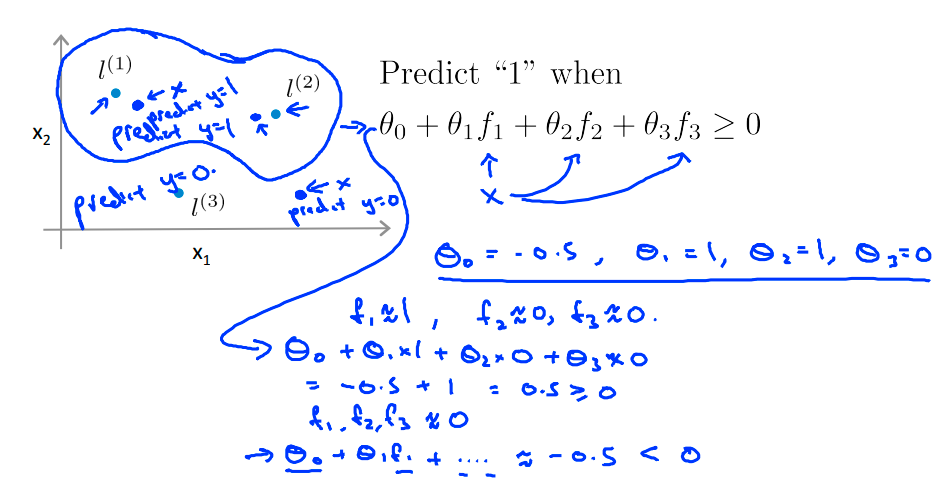 l⁽¹⁾
← x
predict y=1
l⁽²⁾
predict y=1
x₂
predict y=0.
l⁽³⁾
← x
predict y=0
x₁
Predict “1” when
θ₀ + θ₁f₁ + θ₂f₂ + θ₃f₃ ≥ 0
x
θ₀ = -0.5, θ₁ = 1, θ₂ = 1, θ₃ = 0
f₁ ≈ 1, f₂ ≈ 0, f₃ ≈ 0.
→ θ₀ + θ₁×1 + θ₂×0 + θ₃×0
= -0.5 + 1 = 0.5 ≥ 0
f₁, f₂, f₃ ≈ 0
→ θ₀ + θ₁f₁ + .... ≈ -0.5 < 0